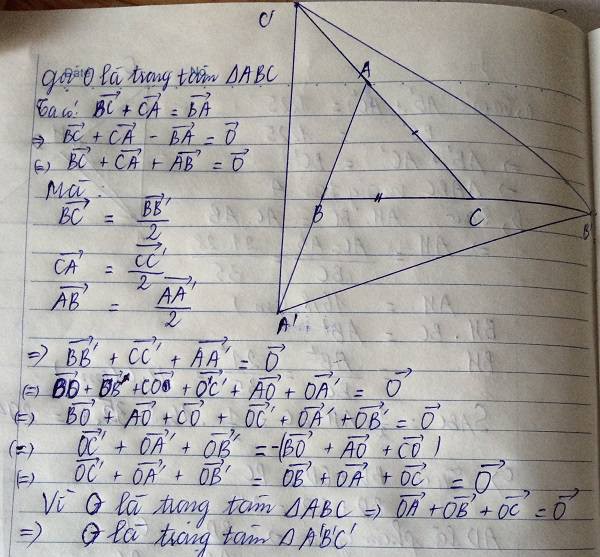 C'
gọi O là trọng tâm ΔABC
A
Ta có: \vec{BC} + \vec{CA} = \vec{BA}
=> \vec{BC} + \vec{CA} - \vec{BA} = \vec{O}
(=) \vec{BC} + \vec{CA} + \vec{AB} = \vec{O}
Mà:
\vec{BC} = \frac{\vec{BB'}}{2}
B C B'
\vec{CA} = \frac{\vec{CC'}}{2}
\vec{AB} = \frac{\vec{AA'}}{2}
A'
=> \vec{BB'} + \vec{CC'} + \vec{AA'} = \vec{O}
(=) \vec{BO} + \vec{OB'} + \vec{CO} + \vec{OC'} + \vec{AO} + \vec{OA'} = \vec{O}
(=) \vec{BO} + \vec{AO} + \vec{CO} + \vec{OC'} + \vec{OA'} + \vec{OB'} = \vec{O}
(=) \vec{OC'} + \vec{OA'} + \vec{OB'} = -(\vec{BO} + \vec{AO} + \vec{CO})
(=) \vec{OC'} + \vec{OA'} + \vec{OB'} = \vec{OB} + \vec{OA} + \vec{OC} = \vec{O}
Vì O là trọng tâm ΔABC => \vec{OA} + \vec{OB} + \vec{OC} = \vec{O}
=> O là trọng tâm ΔA'B'C'